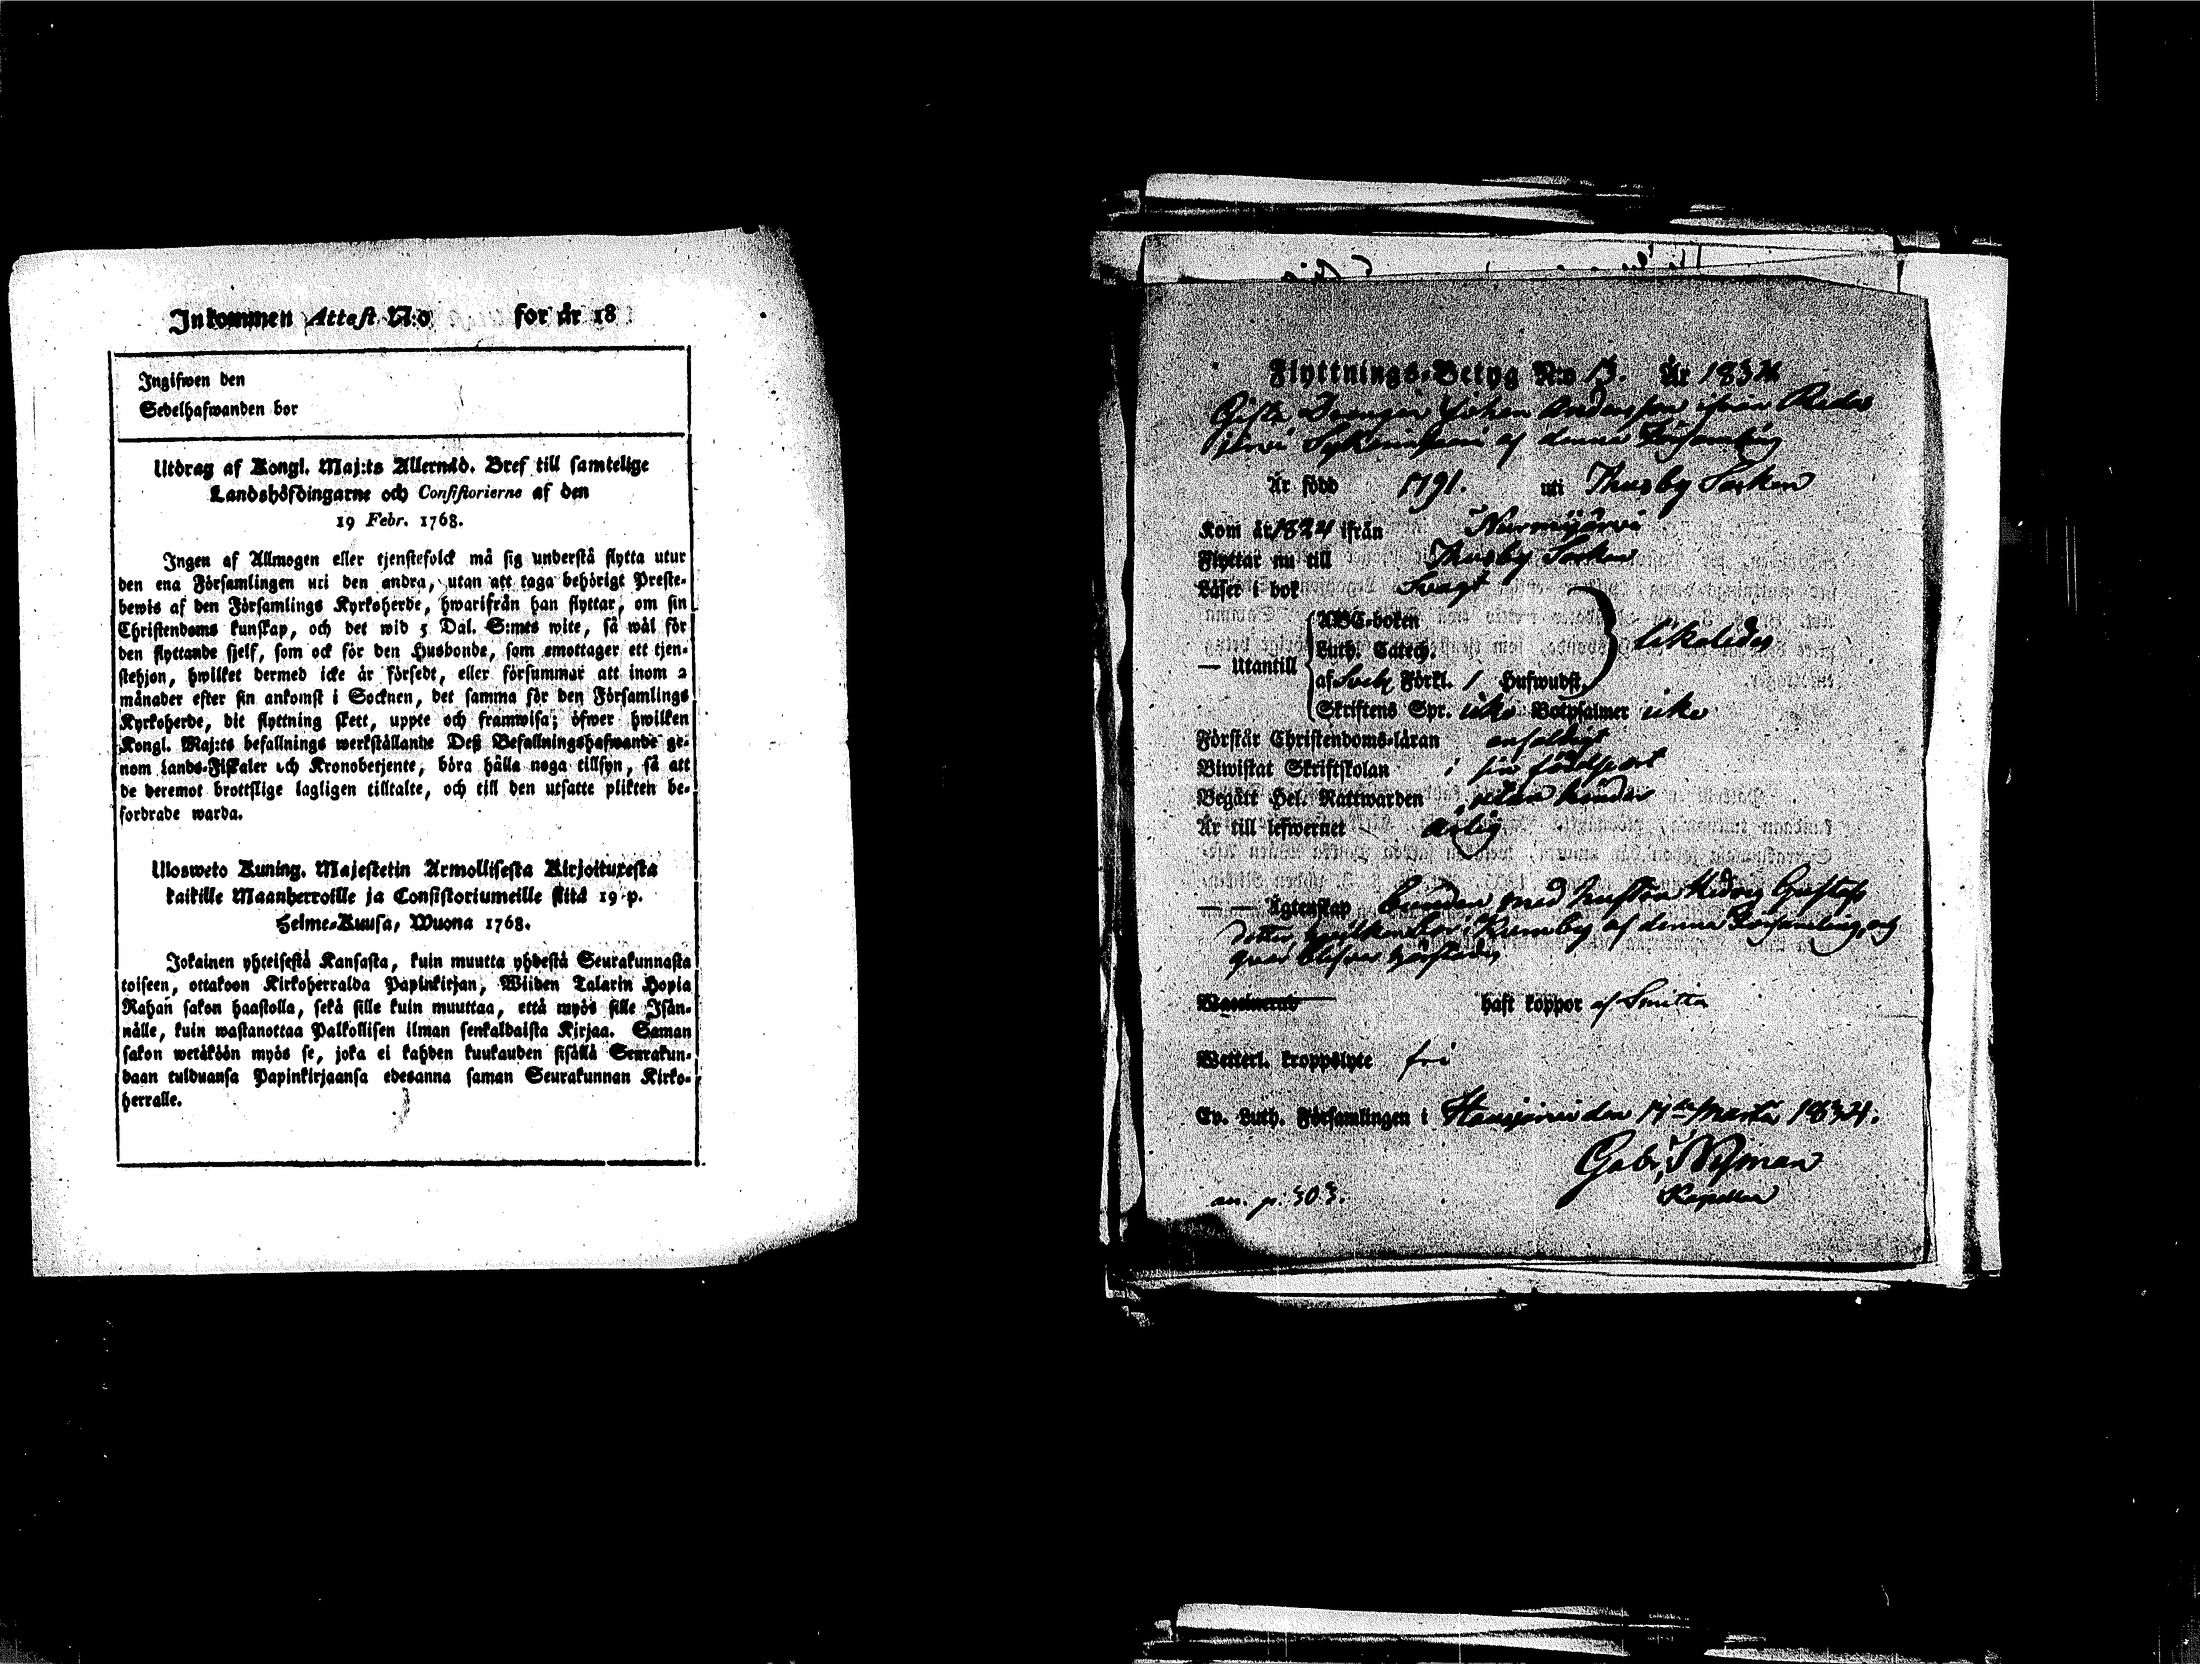 Inkommen Attest N:o för år 18
Ingifwen den
Sedelhafwanden bor
Utdrag af Kongl. Maj:ts Allernåd. Bref till samtelige
Landshöfdingarne och Consistorierne af den
19 Febr. 1768.
Ingen af Allmogen eller tjenstefolck må sig understå flytta utur
den ena Församlingen uti den andra, utan att taga behörigt Preste-
bewis af den Församlings Kyrkoherde, hwarifrån han flyttar, om sin
Christendoms kunskap, och det wid 5 Dal. S:mts wite, så wäl för
den flyttande sjelf, som ock för den Husbonde, som emottager ett tjen-
stehjon, hwilket dermed icke är försedt, eller försummar att inom 2
månader efter sin ankomst i Socknen, det samma för den Församlings
Kyrkoherde, dit flyttning skett, uppte och framwisa; öfwer hwilken
Kongl. Maj:ts befallnings werkställande Dess Befallningshafwande ge-
nom Lands-Fiskaler och Kronobetjente, böra hålla noga tillsyn, så att
de deremot brottslige lagligen tilltalte, och till den utsatte plikten be-
fordrade warda.
Ulosweto Kuning. Majestetin Armollisesta Kirjoituxesta
kaikille Maanherroille ja Consistoriumeille siitä 19 p.
Helme-Kuusa, Wuona 1768.
Jokainen yhteisestä Kansasta, kuin muutta yhdestä Seurakunnasta
toiseen, ottakoon Kirkoherralda Papinkirjan, Wiiden Talarin Hopia
Rahan sakon haastolla, sekä sille kuin muuttaa, että myös sille Isän-
nälle, kuin wastanottaa Palkollisen ilman senkaldaista Kirjaa. Saman
sakon wetäköön myös se, joka ei kahden kuukauden sisällä Seurakun-
daan tulduansa Papinkirjaansa edesanna saman Seurakunnan Kirko-
herralle.
Flyttnings-Betyg N:o 13. År 1834
Gifte Drengen Johan Andersson ifrån
af denna Församling
Är född 1791. uti Thusby Socken
Kom år 1824 ifrån Nurmijärvi
Flyttar nu till Thusby Socken
Läser i bok Svagt
— Utantill
ABC-boken
Luth. Catech.
af Förkl. 1 Hufwudst.
likaledes
Skriftens Spr. icke Botpsalmer icke
Förstår Christendoms-läran enfaldigt
Biwistat Skriftskolan i
Begått Hel. Nattwarden utan hinder
Är till lefwernet ärlig
— — Ägtenskap bunden med hustru Hedvig Gustafs
dotter, af denna Församling, och
Vaccinerad haft koppor af Smitta
Wetterl. kroppslyte fri
Ev. Luth. Församlingen i Hausjärvi den Martii 1834.
Gabr. Nyman
Kapellan
p. 303.